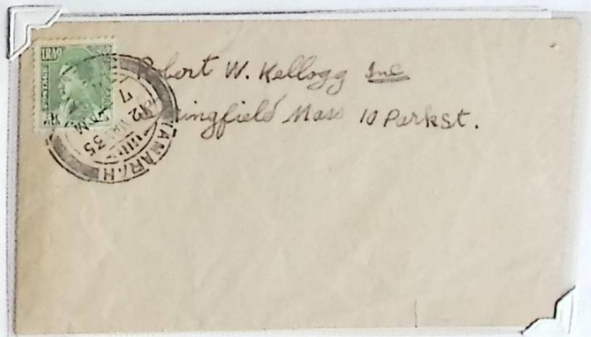 IRAQ
Robert W. Kellogg Inc
Springfield Mass 10 Park st.
AMARAH
35